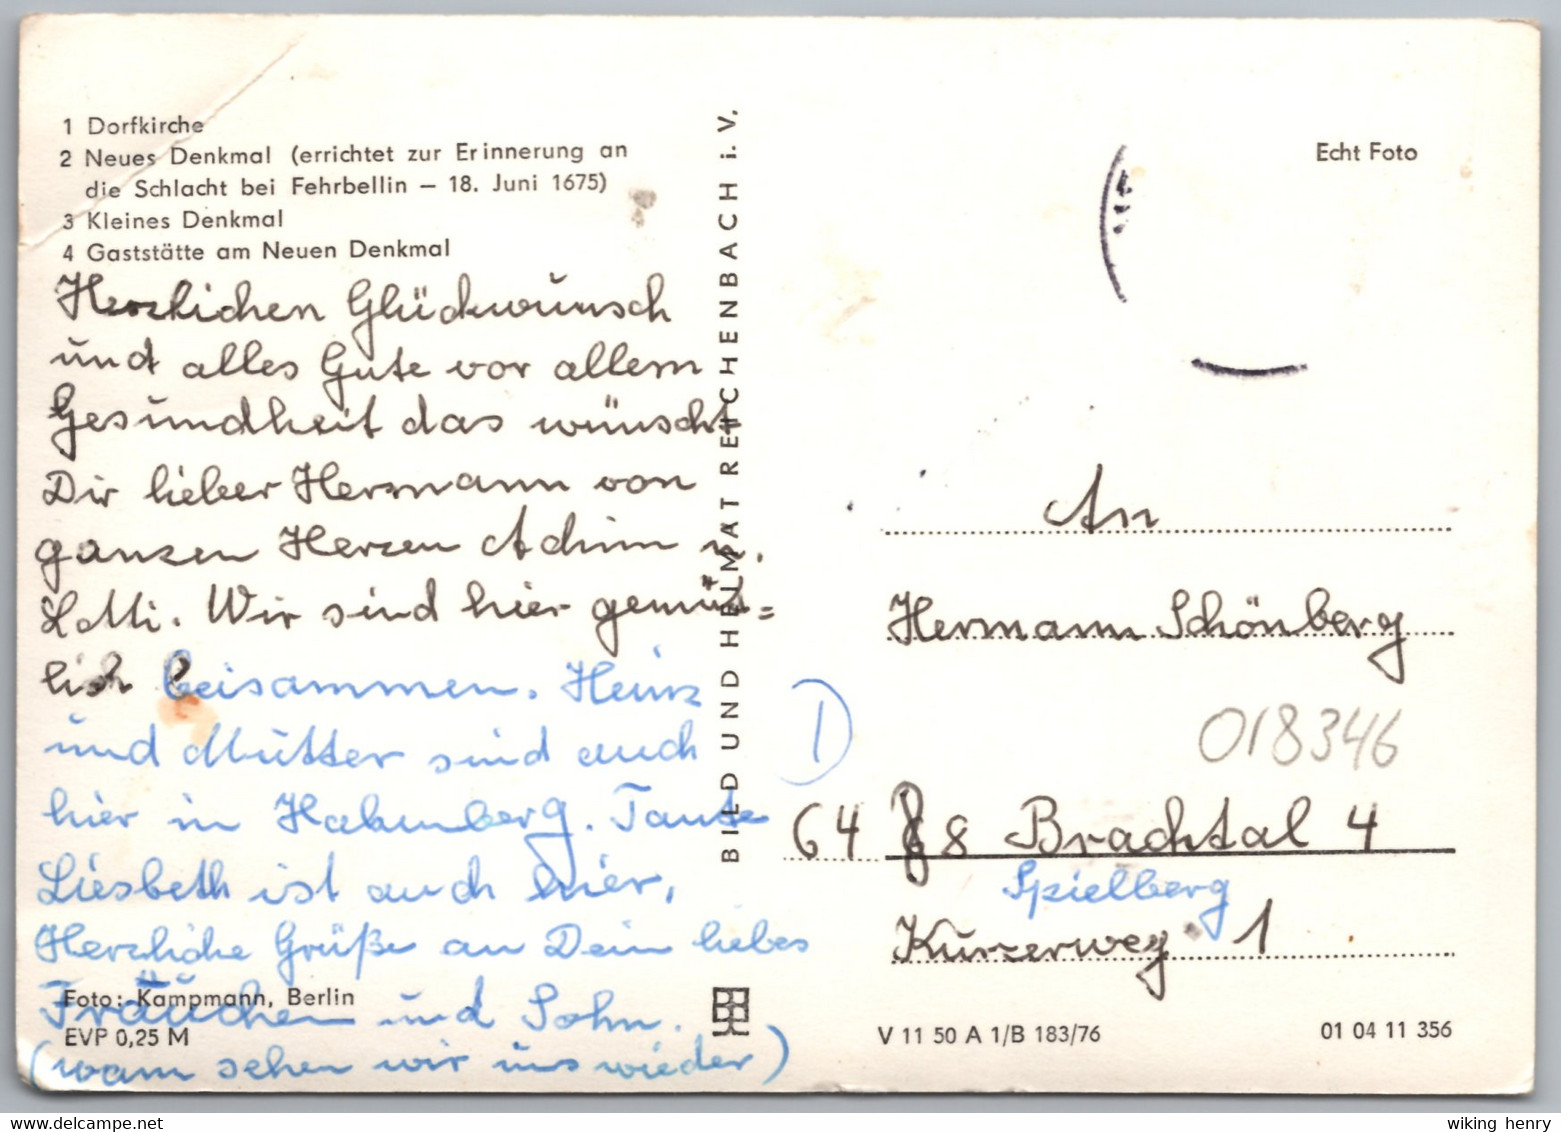 1 Dorfkirche
2 Neues Denkmal (errichtet zur Erinnerung an
die Schlacht bei Fehrbellin – 18. Juni 1675)
3 Kleines Denkmal
4 Gaststätte am Neuen Denkmal
Herzlichen Glückwunsch
und alles Gute vor allem
Gesundheit das wünscht
Dir lieber Hermann von
ganzen Herzen Achim u.
Lotti. Wir sind hier gemüt=
lich beisammen. Heinz
und Mutter sind auch
hier in Hakenberg. Tante
Liesbeth ist auch hier,
Herzliche Grüße an Dein liebes
Frauchen und Sohn.
(wann sehen wir uns wieder)
Foto: Kampmann, Berlin
EVP 0,25 M
BILD UND HEIMAT REICHENBACH i. V.
Echt Foto
An
Hermann Schönberg
D
018346
64 8 Brachtal 4
Spielberg
Kurzerweg 1
V 11 50 A 1/B 183/76
01 04 11 356
wiking henry